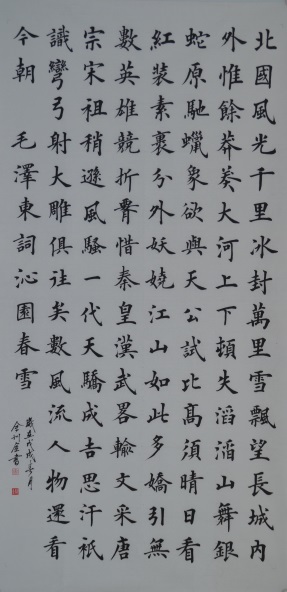 北國風光千里冰封萬里雪飄望長城內
外惟餘莽莽大河上下頓失滔滔山舞銀
蛇原馳蠟象欲與天公試比髙須晴日看
紅裝素裹分外妖嬈江山如此多嬌引無
數英雄競折腰惜秦皇漢武畧輸文采唐
宗宋祖稍遜風騷一代天驕成吉思汗祇
識彎弓射大雕俱往矣數風流人物還看
今朝 毛澤東詞沁園春雪
戊戌
書